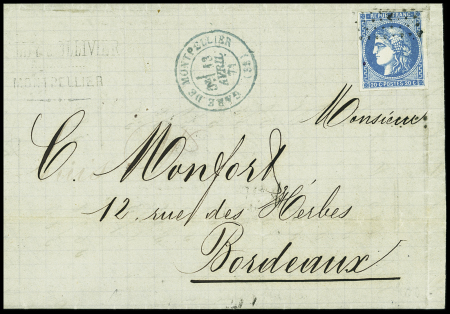 OLLIVIER
MONTPELLIER
GARE DE MONTPELLIER
AVRIL
71
(33)
REPUB. FRANC.
20 C. POSTES 20 C.
Monsieur
C. Monfort
12 rue des Herbes
Bordeaux